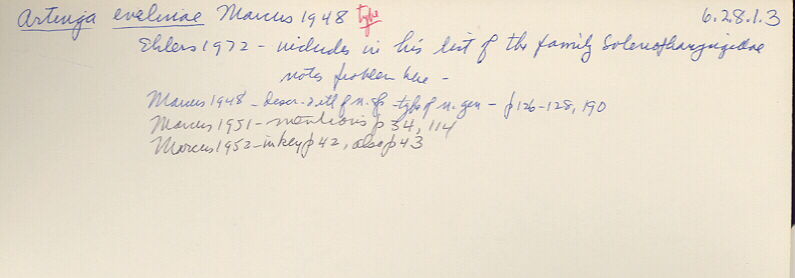 Artinga evelinae Marcus 1948 type 6.28.1.3
Ehlers 1972 - includes in his list of the family Solenopharyngidae
notes problem here -
Marcus 1948 - descr. & ill of n. sp - type of n. gen - p126-128, 190
Marcus 1951 - mentions p 34, 114
Marcus 1952 - in key p 42, also p43